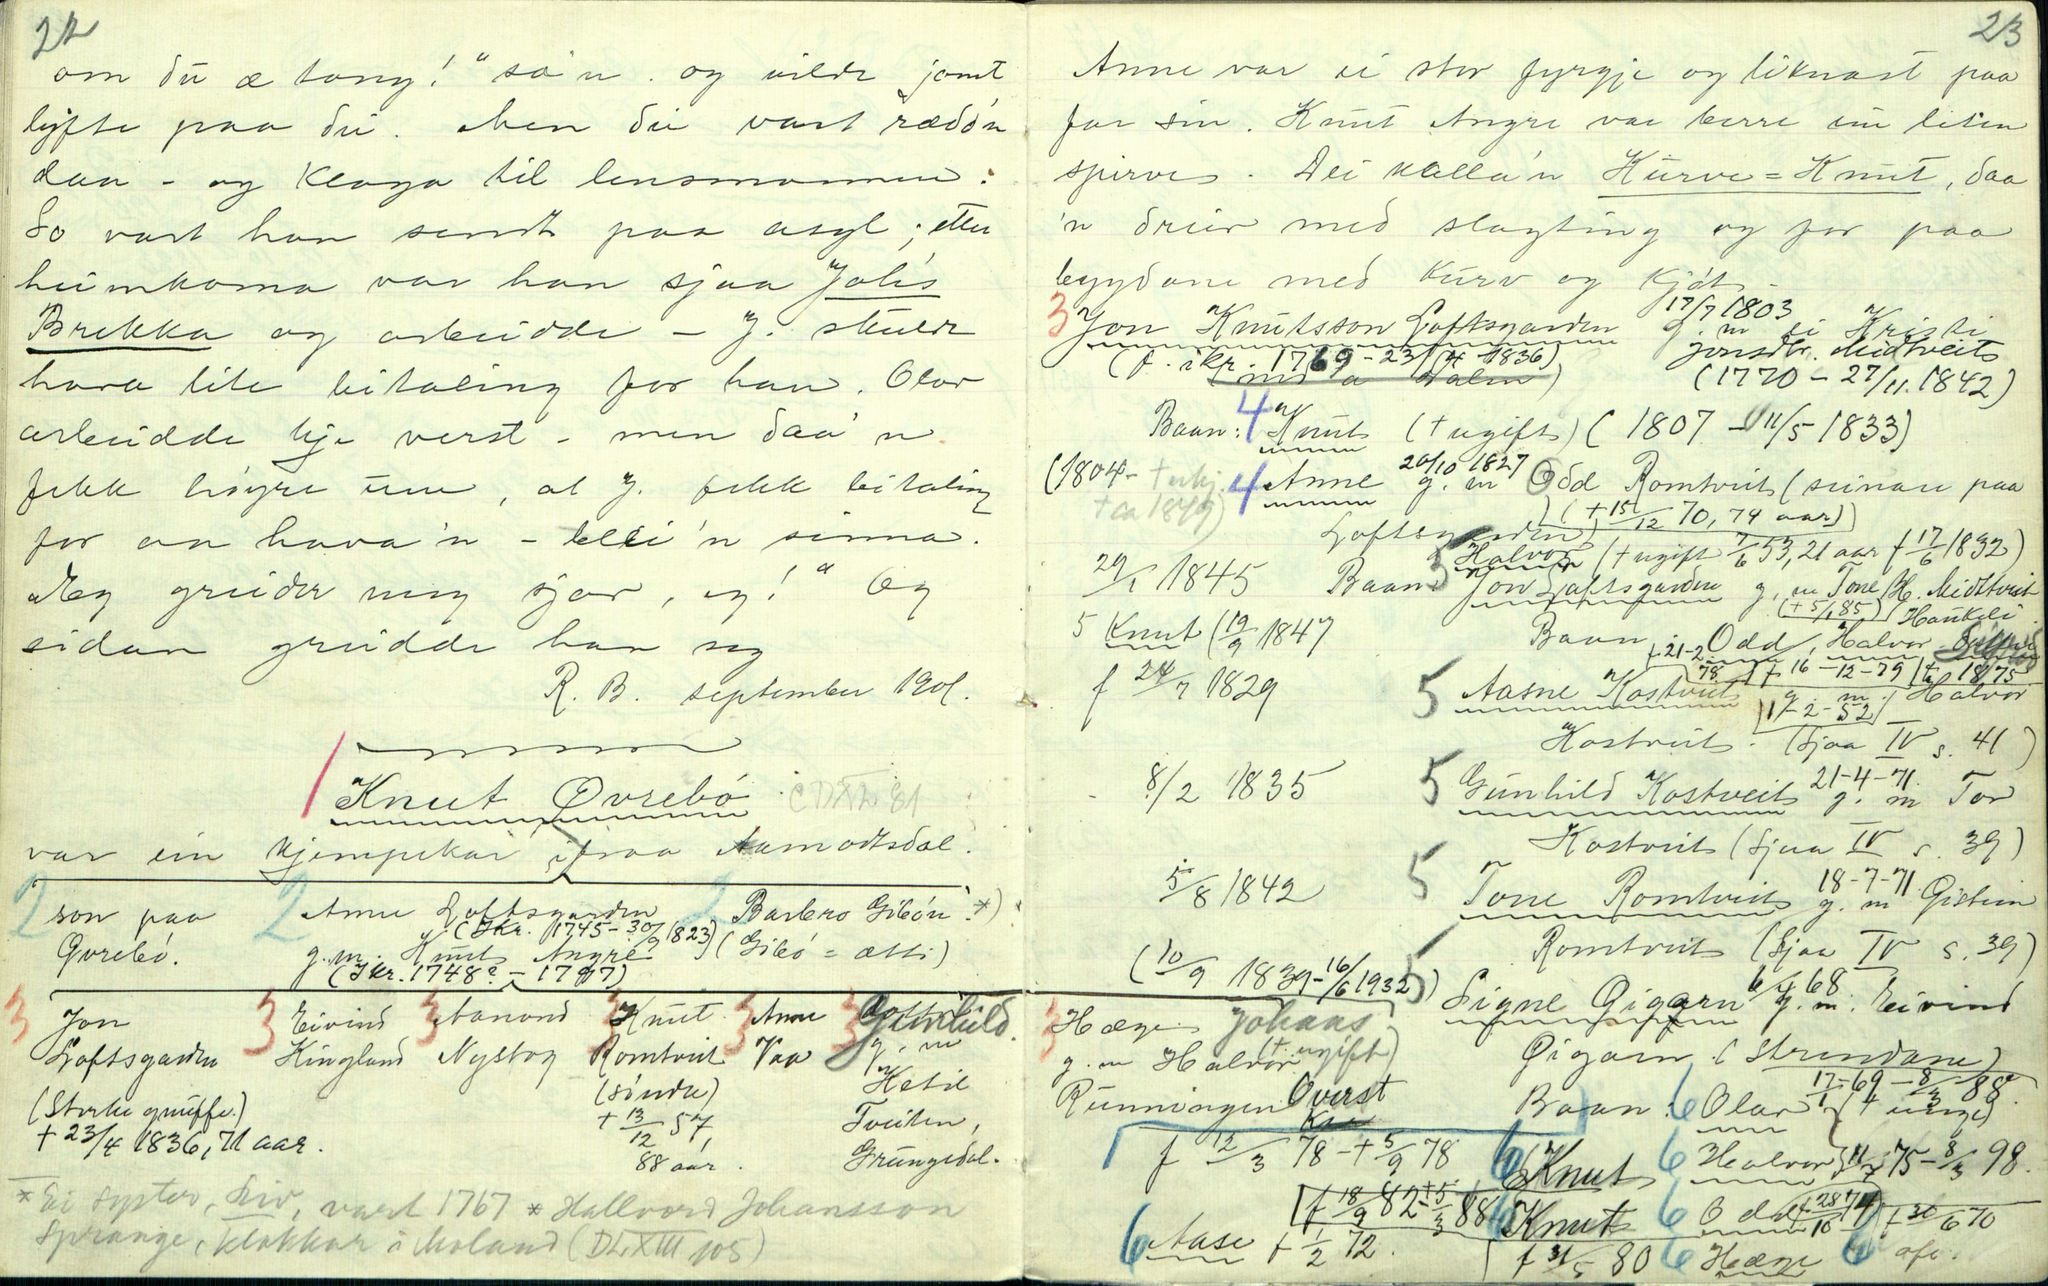 22
om du æ tong!" sa'n. og vilde jamt
lyfte paa du. Men du vart rædd'n
daa - og klaga til lensmannen.
So vart han sendt paa asyl; etter
heimkoma var han sjaa Jølis
Brekka og arbeidde - J. skulde
hava lite betaling for han. Olav
arbeidde kje verst - men daa'n
fekk høyre um, at J. fekk betaling
for aa hava'n - blei'n sinna.
Jeg greider meg sjøv, eg!" Og
sidan greidde han seg
R. B. september 1901.
1 Knut Øvrebø
var ein kjempekar ifraa Aamodtsdal.
2 son paa
Øvrebø.
2 Anne Loftsgarden
(Ikr. 1745 - 30/9 1823)
g. m. Knut Angre
(Ikr. 1748? - 1797)
2 Barbro Gibøn *)
(Gibø = ætti)
3 Jon
Loftsgarden
(Sterke gnuffe.)
+ 23/4 1836, 71 aar.
3 Eivind
Kingland
3 Aanond
Nystog
3 Knut
Romtveit
(søndre)
+ 13/12 57,
88 aar.
3 Anne
Vaa
3 Gunhild.
g. m
Ketil
Tveiten,
Grungedal.
* Ei syster, Liv, vart 1767 * Hallvord Johansson
Sprange, klokkar i Moland (DLXIII 105)
23
Anne var ei stor fyrgje og liknast paa
far sin. Knut Angre var berre ein liten
spirvis. Dei kalla'n Kurve-Knut, daa
'n dreiv med slagting og for paa
bygdane med kurv og kjøt.
3 Jon Knutsson Loftsgarden 17/7 1803 g. m ei Kristi
Jonsdtr. Midtveit
(f. ikr. 1769 - 23/4 1836)
(1770 - 27/11. 1842)
Baan: 4 Knut (+ ugift) (1807 - 11/5 1833)
(1804 - 4 Anne 20/10 1827 g. m Odd Romtveit (seinare paa
+ ca 1849)
Loftsgarden) (+ 15/12 70, 74 aar)
5 Halvor (+ ugift 7/6 53, 21 aar f 17/6 1832)
29/1 1845 Baan: Jon Loftsgarden g. m Tone H. Midtveit
(+ 5/1 85) Haukeli
5 Knut (19/9 1847 Baan Odd, Halvor
f 24/7 1829 5 Aasne Kostveit g. m. Halvor
Kostveit. (Sjaa IV s. 41)
8/2 1835 5 Gunhild Kostveit 21-4-71. g. m Tor
Kostveit (Sjaa IV s. 39)
5/8 1842 5 Tone Romtveit 18-7-71. g. m Gistein
Romtveit (Sjaa IV s. 39)
(10/9 1839 - 16/6 1932) 5 Signe Øigarn g. m. Eivind
Øigarn. (Strendane)
3 Hæge
g. m Halvor
Runningen
Johans
(+ ugift)
Øverst
Baan: 6 Olav
f 12/3 78 - + 5/9 78 6 Knut 6 Halvor 75 - 8/3 98.
f 18/9 82 - + 5/3 88 6 Knut 6 Odd + 30/6 70
6 Aase + 1/2 72. 6 Hæge